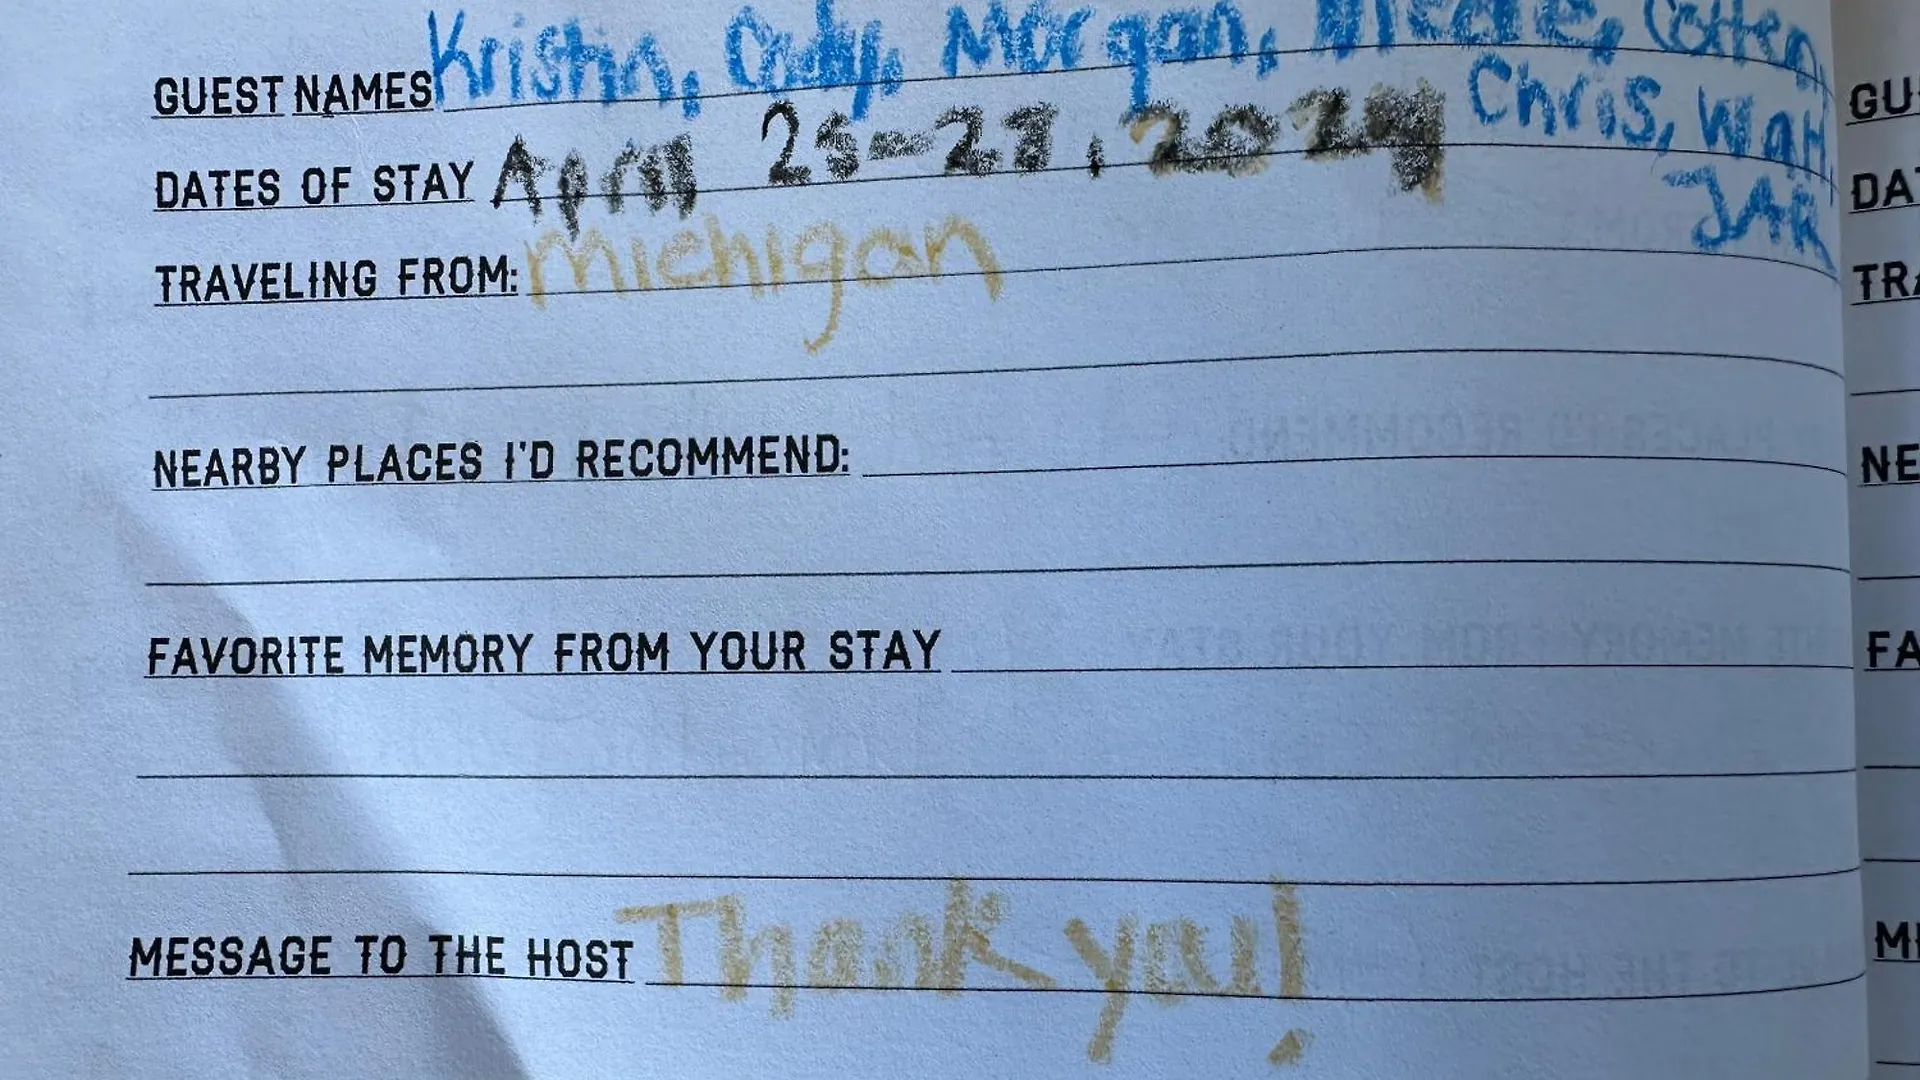 GUEST NAMES Kristin, Cody, Morgan, Colten,
Chris, Wall
DATES OF STAY April 25-27, 2024
JAR
TRAVELING FROM: michigan
NEARBY PLACES I'D RECOMMEND:
FAVORITE MEMORY FROM YOUR STAY
MESSAGE TO THE HOST Thank you!
GU
DA
TRA
NE
FA